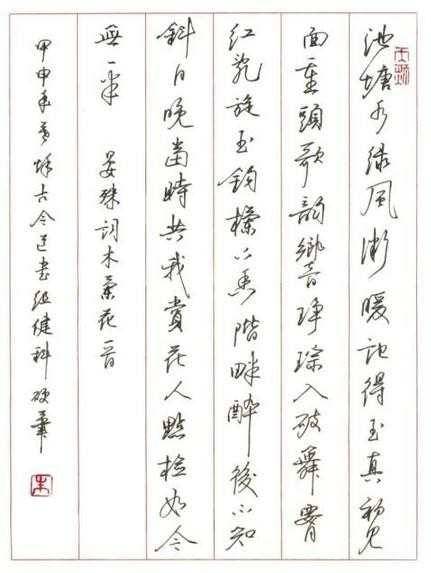 池塘水綠風微暖記得玉真初見
面重頭歌韻響琤琮入破舞腰
紅亂旋玉鉤欄下香階畔醉後不知
斜日晚當時共我賞花人點檢如今
無一半 晏殊詞木蘭花一首
甲申年古今書健科硬筆